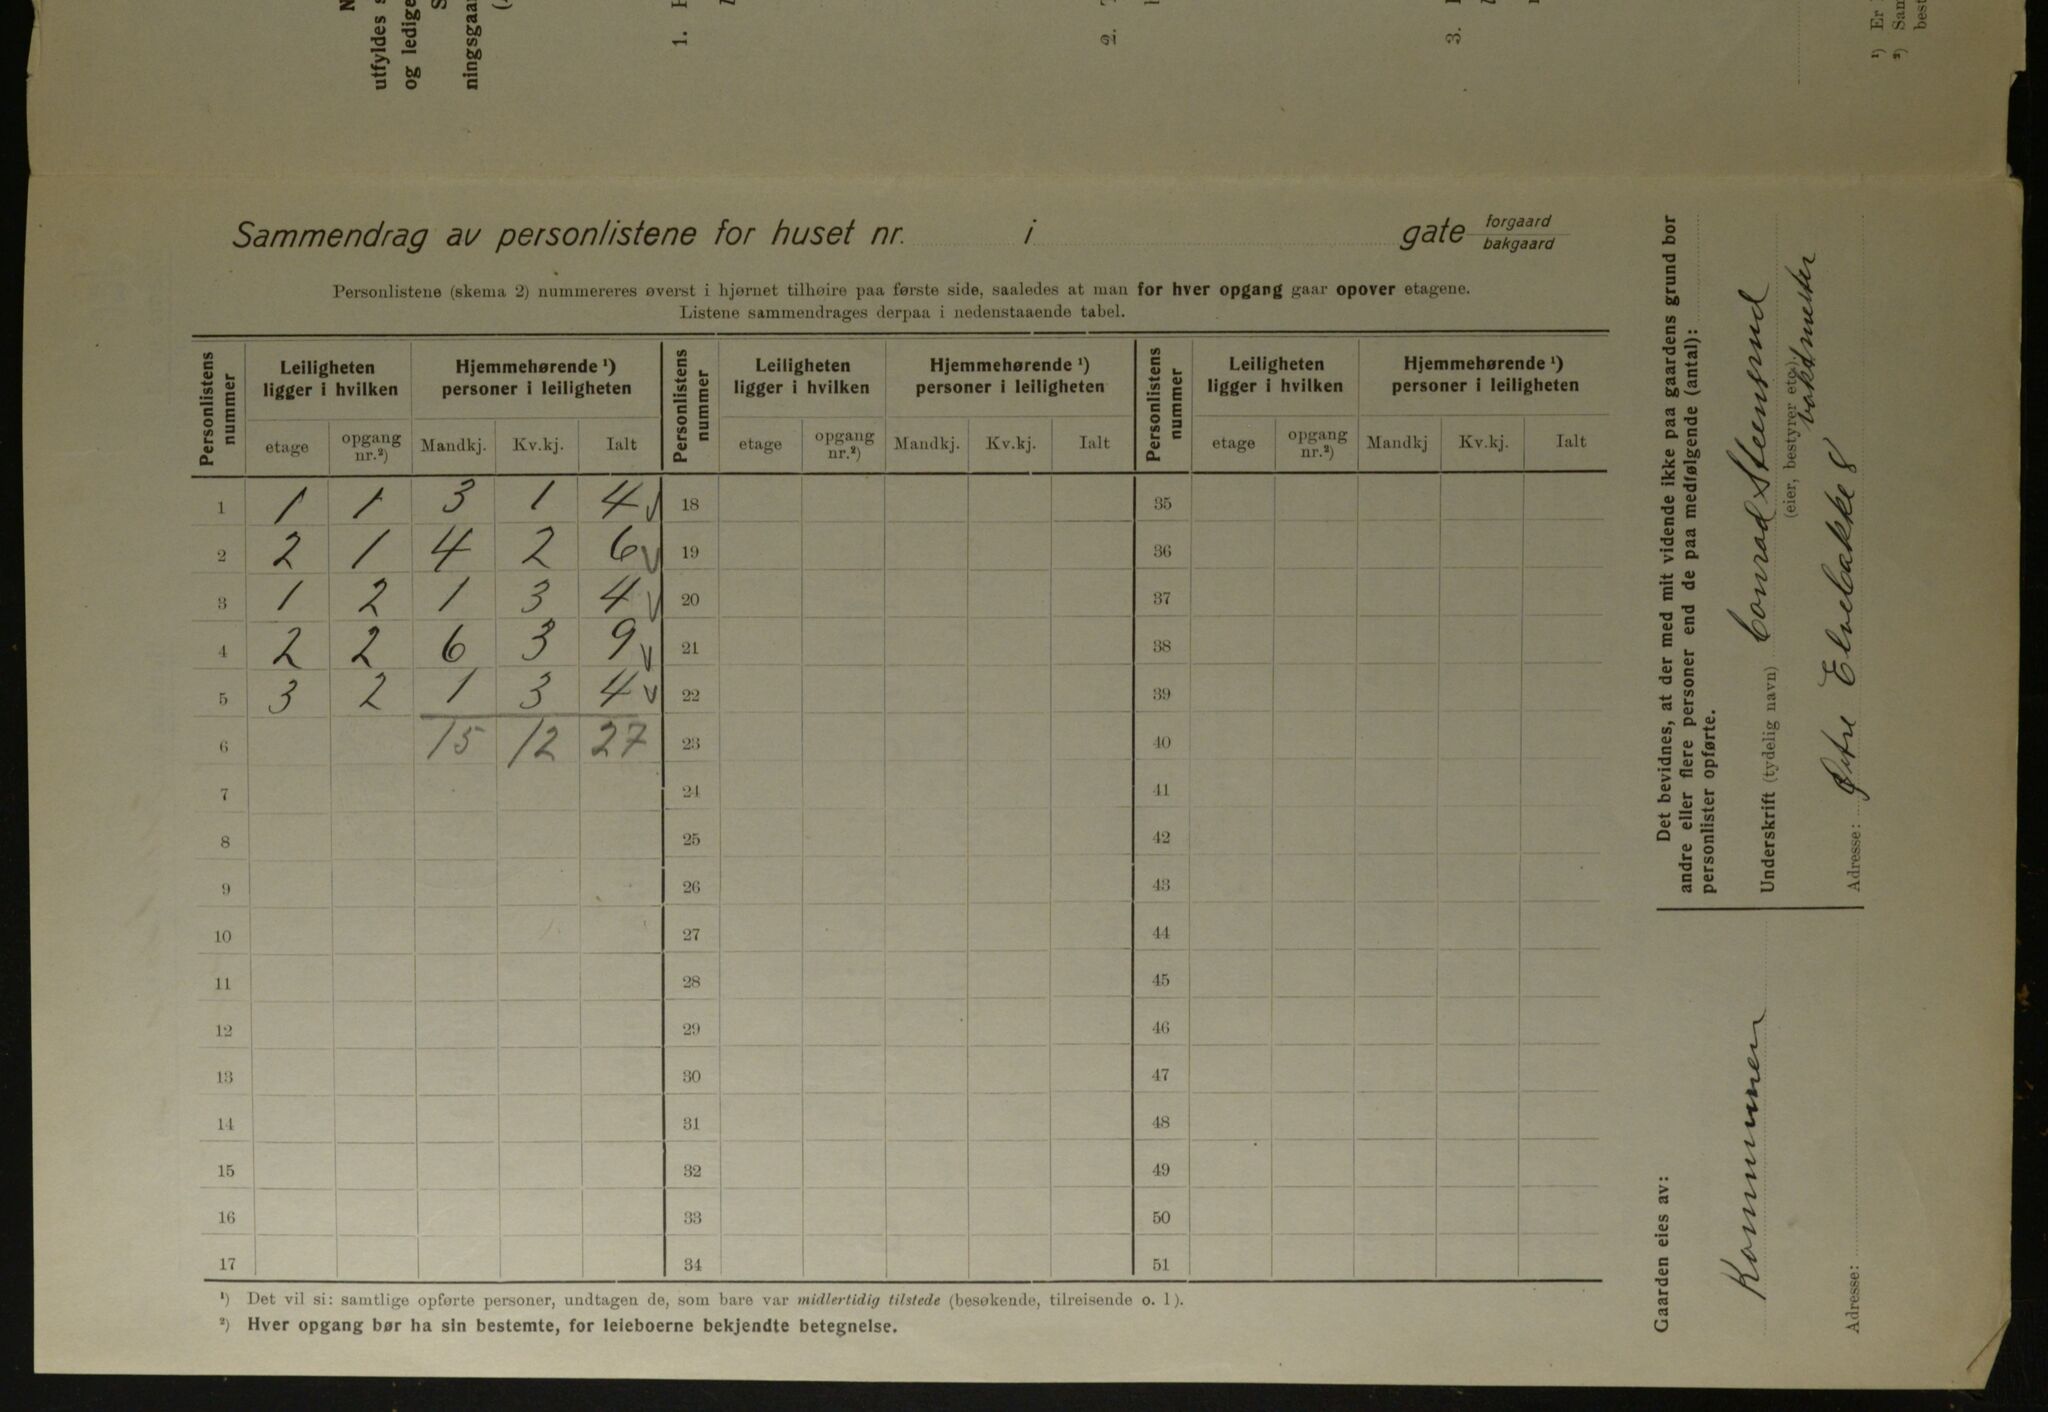 N
utfyldes s
og ledige
S
ningsgaar
1.
2.
3.
¹) Er
²) Sam
best
Sammendrag av personlistene for huset nr. i gate forgaard
bakgaard
Personlistene (skema 2) nummereres øverst i hjørnet tilhøire paa første side, saaledes at man for hver opgang gaar opover etagene.
Listene sammendrages derpaa i nedenstaaende tabel.
Personlistens nummer | Leiligheten ligger i hvilken | Hjemmehørende ¹) personer i leiligheten | Personlistens nummer | Leiligheten ligger i hvilken | Hjemmehørende ¹) personer i leiligheten | Personlistens nummer | Leiligheten ligger i hvilken | Hjemmehørende ¹) personer i leiligheten
etage | opgang nr.²) | Mandkj. | Kv.kj. | Ialt | etage | opgang nr.²) | Mandkj. | Kv.kj. | Ialt | etage | opgang nr.²) | Mandkj | Kv.kj. | Ialt
1 1 1 3 1 4 √ 18 35
2 2 1 4 2 6 √ 19 36
3 1 2 1 3 4 √ 20 37
4 2 2 6 3 9 √ 21 38
5 3 2 1 3 4 √ 22 39
6 15 12 27 23 40
7 24 41
8 25 42
9 26 43
10 27 44
11 28 45
12 29 46
13 30 47
14 31 48
15 32 49
16 33 50
17 34 51
¹) Det vil si: samtlige opførte personer, undtagen de, som bare var midlertidig tilstede (besøkende, tilreisende o. l).
²) Hver opgang bør ha sin bestemte, for leieboerne bekjendte betegnelse.
Det bevidnes, at der med mit vidende ikke paa gaardens grund bor
andre eller flere personer end de paa medfølgende (antal):
personlister opførte.
Underskrift (tydelig navn) Conrad Steensrud
(eier, bestyrer etc.) vaktmester
Adresse: Øvre Elvebakke 8
Gaarden eies av:
Kommunen
Adresse: